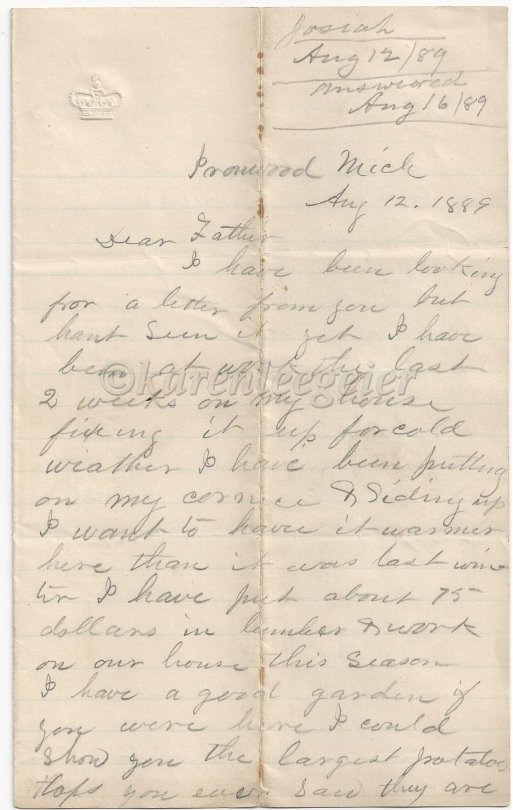 Josiah
Aug 12/89
answered
Aug 16/89
Ironwood Mich
Aug 12. 1889
Dear Father
I have been looking
for a letter from you but
hant Seen it yet I have
been at work the last
2 weeks on my house
fixing it up for cold
wiather I have been putting
on my cornice & Siding up
I want to have it warmer
here than it was last win-
ter I have put about 75
dollars in lumber & work
on our house this Season
I have a good garden if
you were here I could
Show you the largest potatoe
tops you ever Saw they are
©karenleegeier